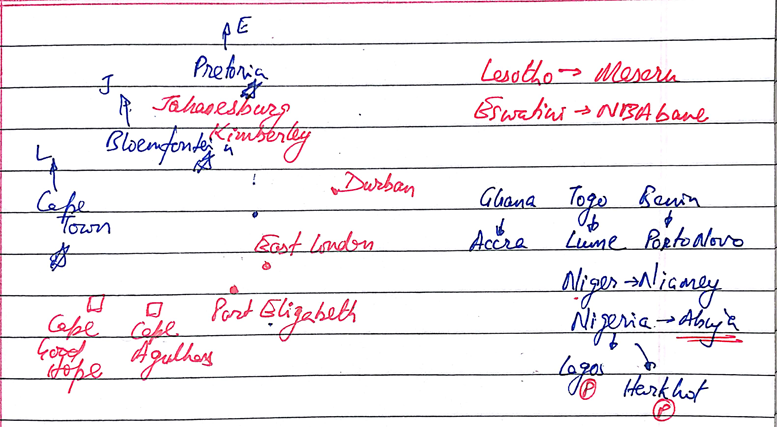 E
Pretoria
J
Johanesburg
Bloemfontein
Kimberley
L
Cape
Town
Durban
East London
Port Elizabeth
Cape
Good
Hope
Cape
Agulhas
Lesotho → Maseru
Eswatini → MBAbane
Ghana Togo Benin
Accra Lume PortoNovo
Niger → Niamey
Nigeria → Abuja
Lagos
P
Harkhot
P